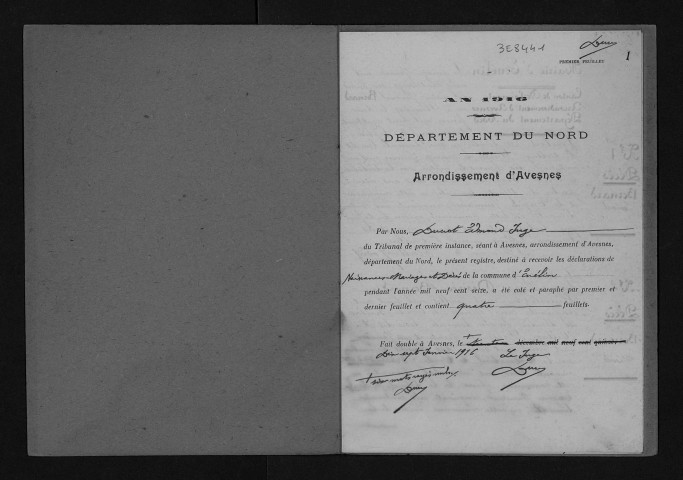 3E8441
PREMIER FEUILLET
1
AN 1916
DÉPARTEMENT DU NORD
Arrondissement d'Avesnes
Par Nous, Edmond Juge
du Tribunal de première instance, séant à Avesnes, arrondissement d'Avesnes,
département du Nord, le présent registre, destiné à recevoir les déclarations de
Naissances Mariages et Décès de la commune d'
pendant l'année mil neuf cent seize, a été coté et paraphé par premier et
dernier feuillet et contient quatre feuillets.
Fait double à Avesnes, le décembre mil neuf cent quinze
Dix sept Janvier 1916 Le Juge
mots rayés nuls